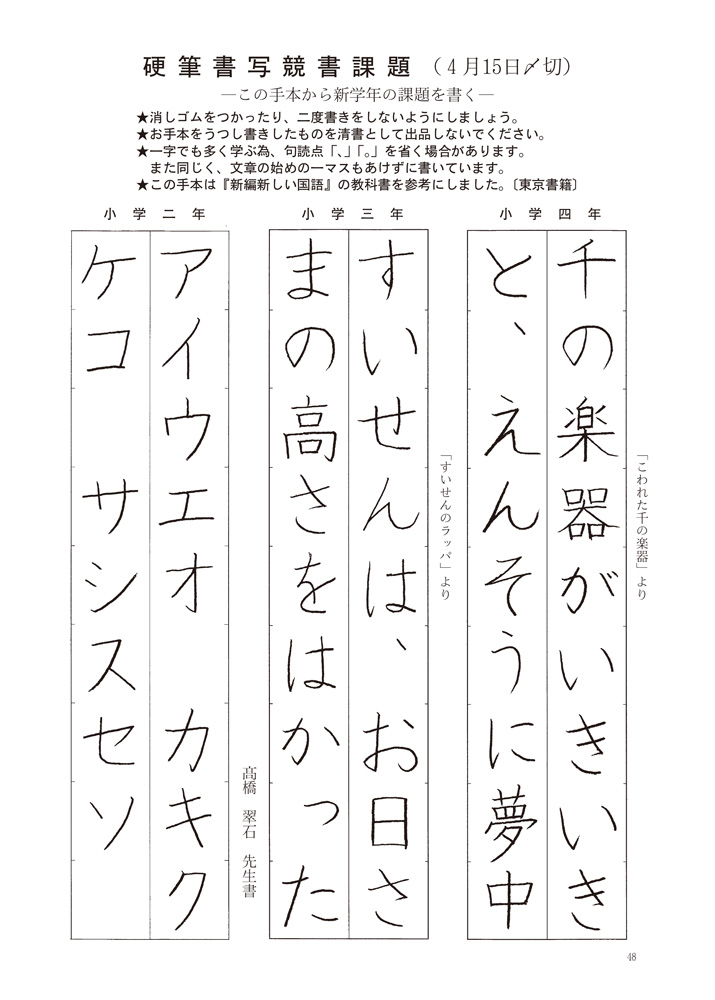 硬筆書写競書課題（4月15日〆切）
―この手本から新学年の課題を書く―
★消しゴムをつかったり、二度書きをしないようにしましょう。
★お手本をうつし書きしたものを清書として出品しないでください。
★一字でも多く学ぶ為、句読点「、」「。」を省く場合があります。
また同じく、文章の始めの一マスもあけずに書いています。
★この手本は『新編新しい国語』の教科書を参考にしました。〔東京書籍〕
小学四年
「こわれた千の楽器」より
千の楽器がいきいき
と、えんそうに夢中
小学三年
「すいせんのラッパ」より
すいせんは、お日さ
まの高さをはかった
小学二年
アイウエオ　カキク
ケコ　サシスセソ
髙橋　翠石　先生書
48